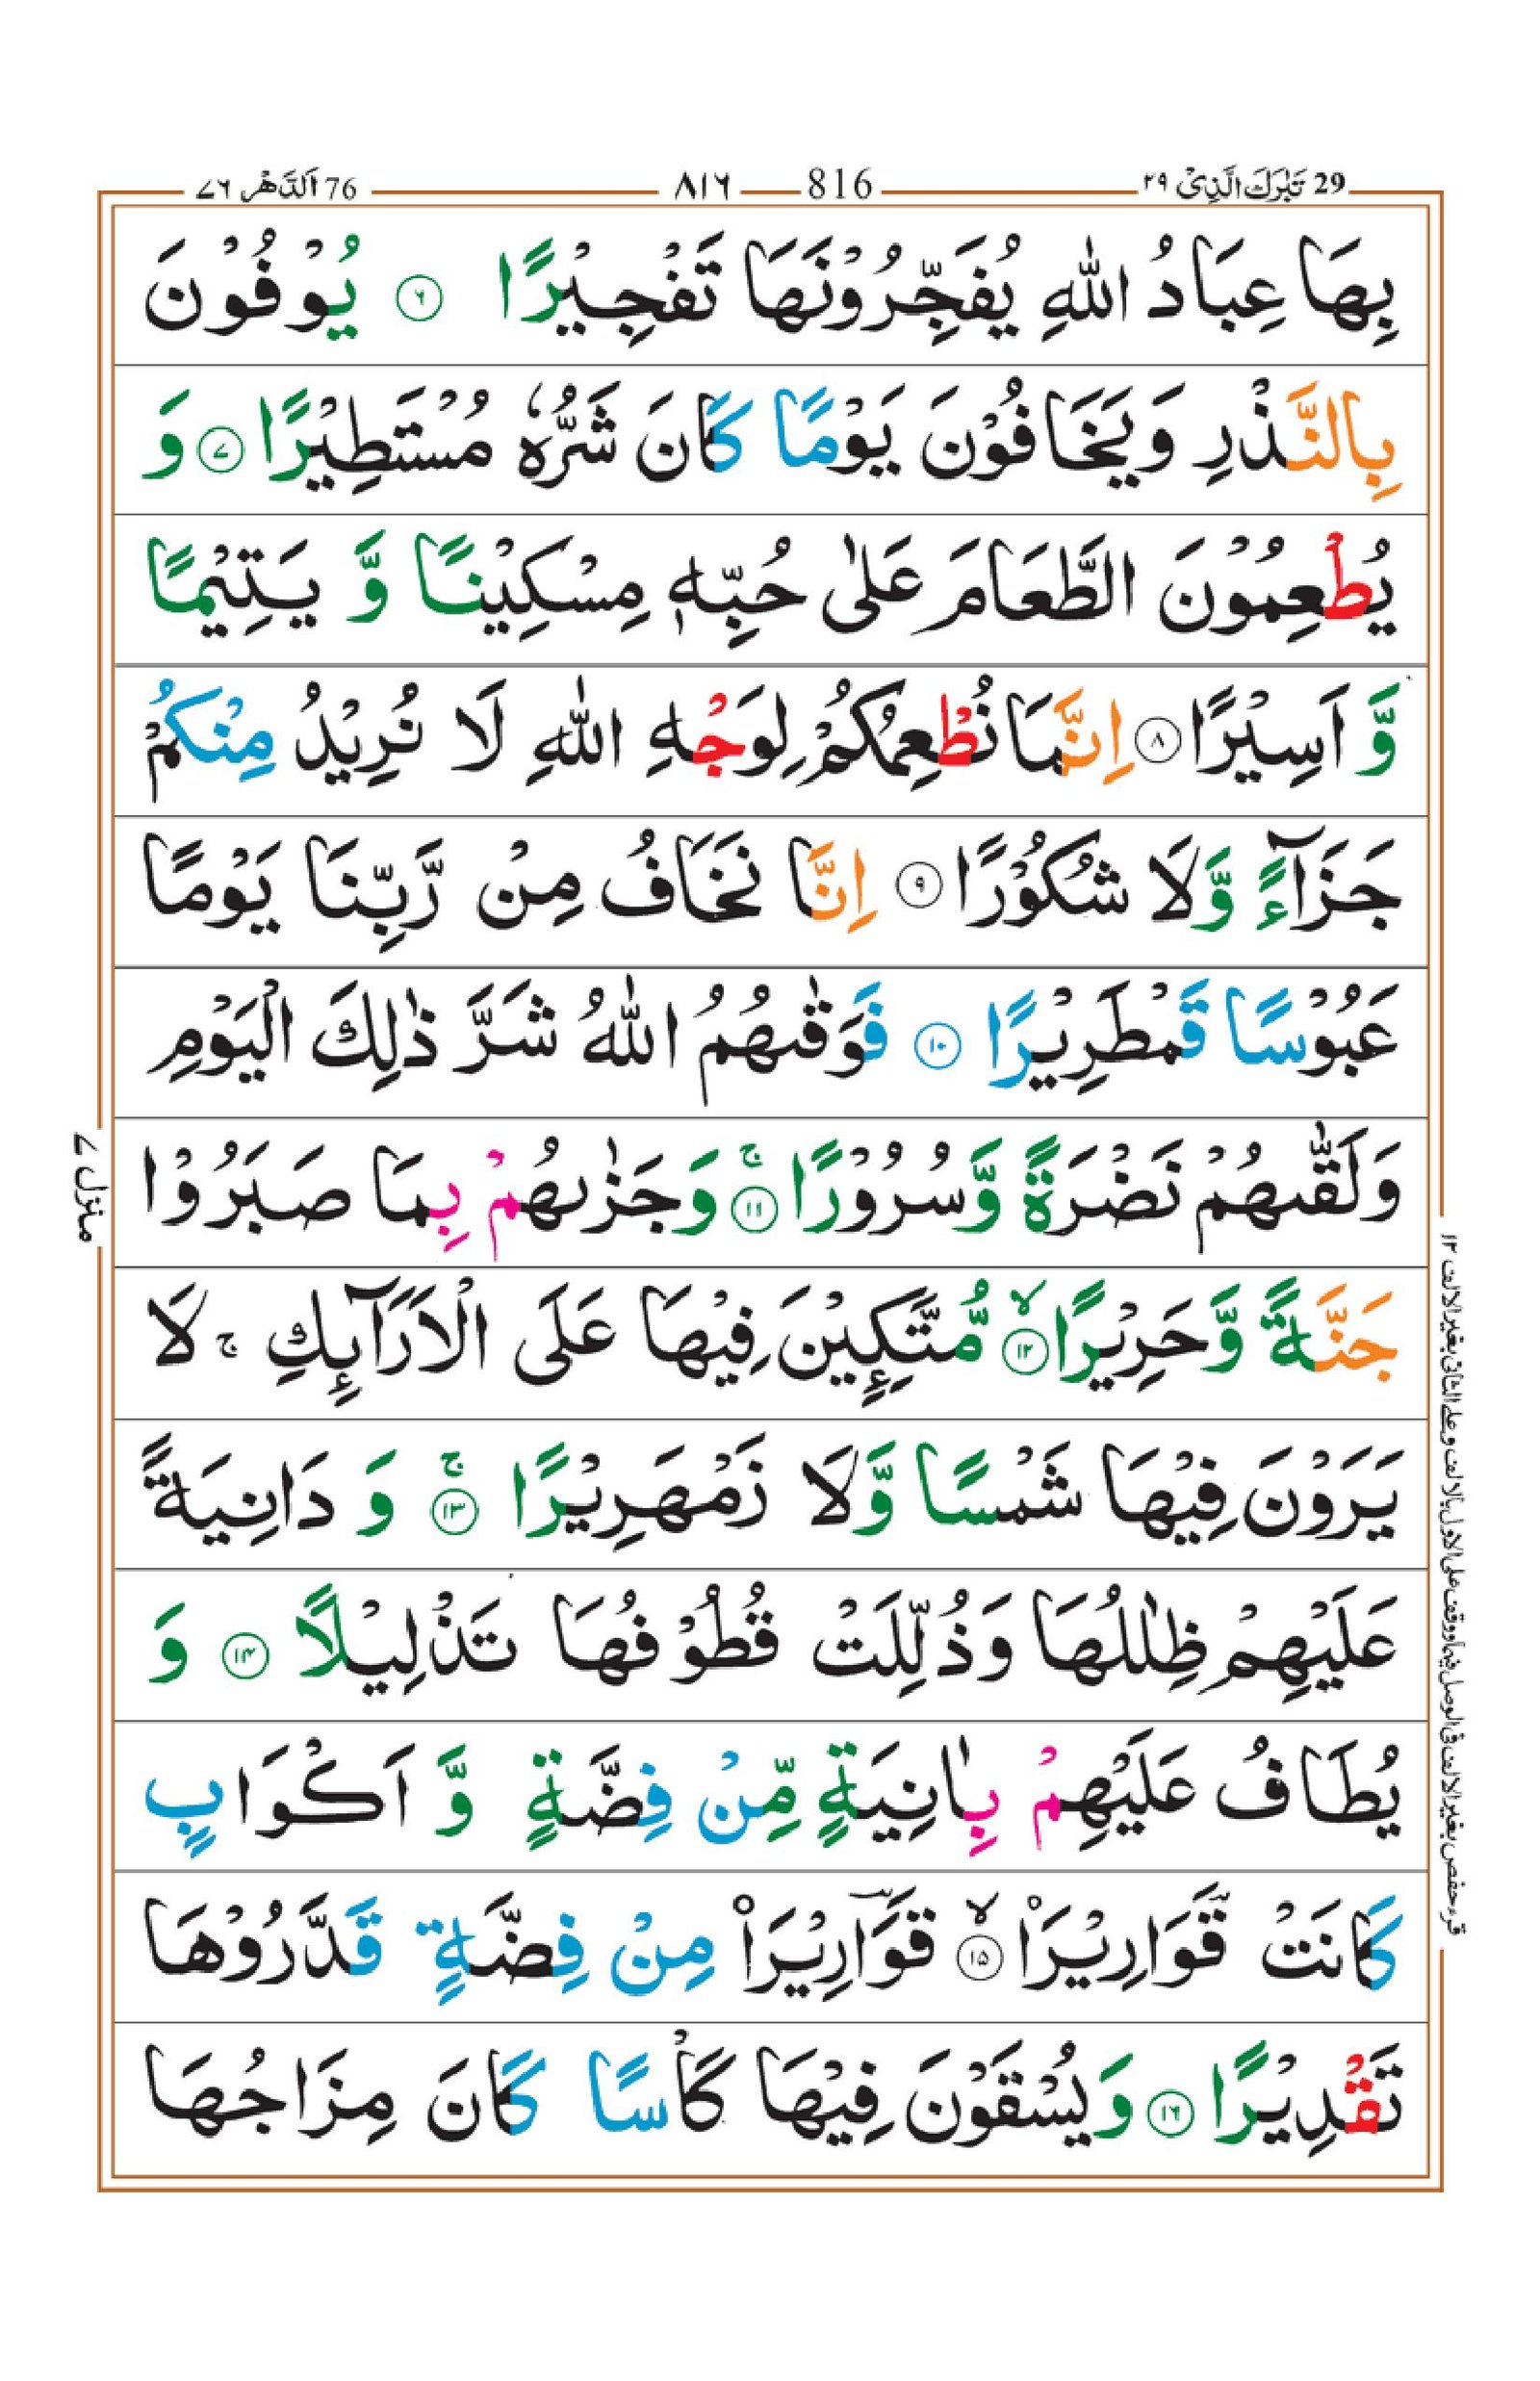 29 تَبٰرَكَ الَّذِىْ ۲۹
816 ۸۱۶
76 اَلدَّهْر ۷۶
بِهَا عِبَادُ اللّٰهِ يُفَجِّرُوْنَهَا تَفْجِيْرًا ۶ يُوْفُوْنَ
بِالنَّذْرِ وَيَخَافُوْنَ يَوْمًا كَانَ شَرُّهٗ مُسْتَطِيْرًا ۷ وَ
يُطْعِمُوْنَ الطَّعَامَ عَلٰى حُبِّهٖ مِسْكِيْنًا وَّ يَتِيْمًا
وَّ اَسِيْرًا ۸ اِنَّمَا نُطْعِمُكُمْ لِوَجْهِ اللّٰهِ لَا نُرِيْدُ مِنْكُمْ
جَزَآءً وَّلَا شُكُوْرًا ۹ اِنَّا نَخَافُ مِنْ رَّبِّنَا يَوْمًا
عَبُوْسًا قَمْطَرِيْرًا ۱۰ فَوَقٰىهُمُ اللّٰهُ شَرَّ ذٰلِكَ الْيَوْمِ
وَلَقّٰىهُمْ نَضْرَةً وَّسُرُوْرًا ۚ ۱۱ وَجَزٰىهُمْ بِمَا صَبَرُوْا
جَنَّةً وَّحَرِيْرًا ۙ ۱۲ مُّتَّكِـِٕيْنَ فِيْهَا عَلَى الْاَرَآىِٕكِ ۚ لَا
يَرَوْنَ فِيْهَا شَمْسًا وَّلَا زَمْهَرِيْرًا ۚ ۱۳ وَ دَانِيَةً
عَلَيْهِمْ ظِلٰلُهَا وَذُلِّلَتْ قُطُوْفُهَا تَذْلِيْلًا ۱۴ وَ
يُطَافُ عَلَيْهِمْ بِاٰنِيَةٍ مِّنْ فِضَّةٍ وَّ اَكْوَابٍ
كَانَتْ قَوَارِيْرَا۠ ۙ ۱۵ قَوَارِيْرَا۟ مِنْ فِضَّةٍ قَدَّرُوْهَا
تَقْدِيْرًا ۱۶ وَيُسْقَوْنَ فِيْهَا كَاْسًا كَانَ مِزَاجُهَا
منزل ۷
قرء حفص بغير الالف فى الوصل فيهما ووقف على الاول بالالف وعلى الثانى بغير الالف ۱۲